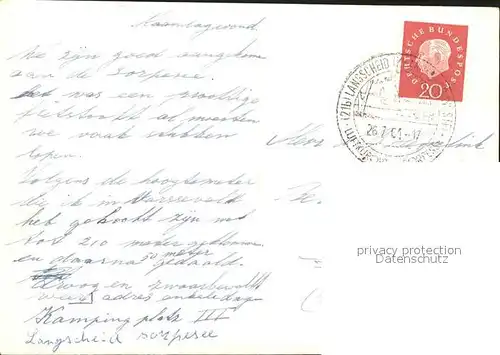 Maandagavond.
We zijn goed aangekomen
aan de Sorpesee.
Het was een prachtige
fietstocht al moesten
we vaak stukken
lopen.
Volgens de hoogtemeter
die ik in Varsseveld
heb gekocht zijn we
tot 210 meter geklommen
en daarna 50 meter gedaald.
Droog en zwaarbewolkt
adres enkele dagen
Kamping platz III
Langscheid Sorpesee
DEUTSCHE BUNDESPOST
20
(21b) LANGSCHEID
LUFTKURORT
privacy protection
veikkos.com